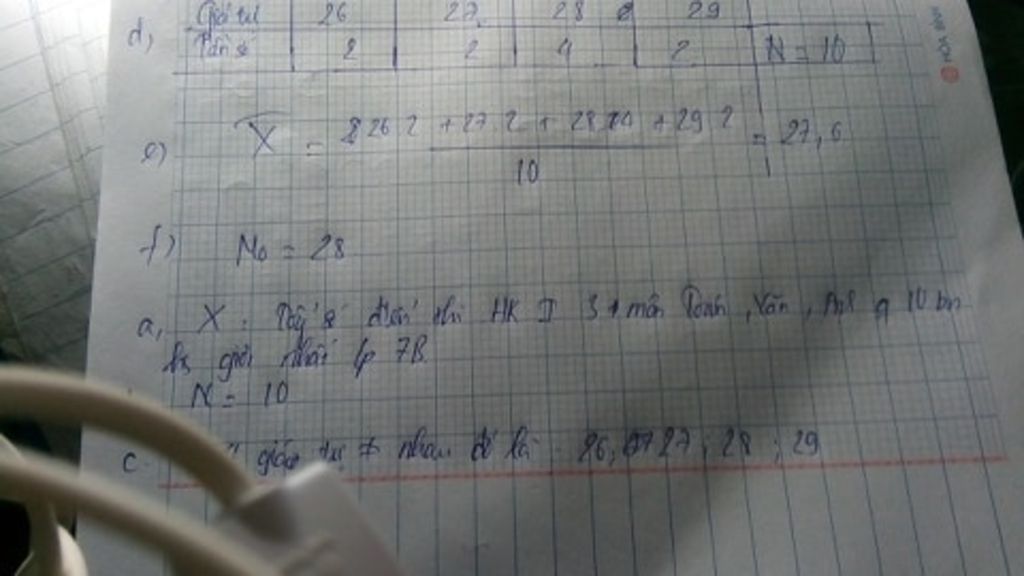 d, Giá trị 26 27 28 29
Tần số 2 2 4 2 N = 10
e) X = 26.2 + 27.2 + 28.4 + 29.2 = 27,6
10
f) M0 = 28
a, X: Tổng số điểm thi HK II 3 môn Toán, Văn, 10 bn
hs giỏi nhất lp 7B.
N = 10
c. giá trị ≠ nhau đó là: 26, 27; 28; 29